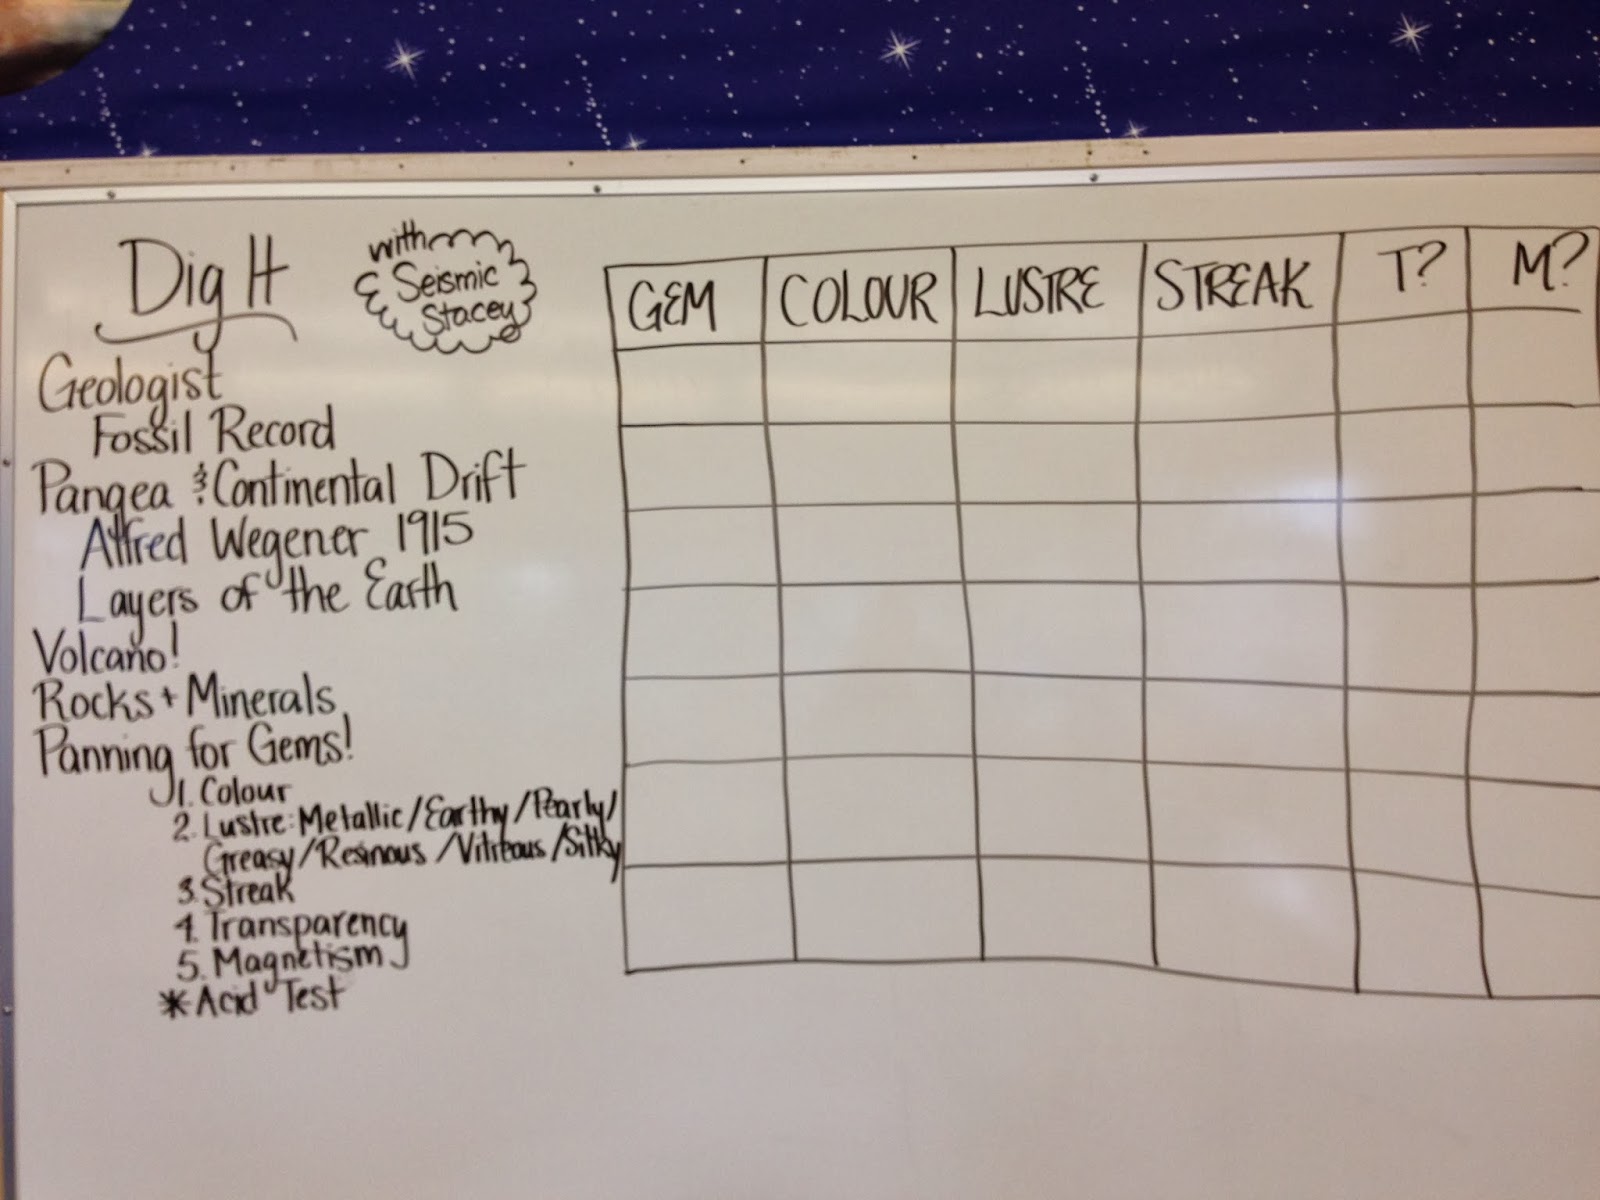 Dig It
with
Seismic
Stacey
Geologist
Fossil Record
Pangea & Continental Drift
Alfred Wegener 1915
Layers of the Earth
Volcano!
Rocks + Minerals
Panning for Gems!
1. Colour
2. Lustre: Metallic/Earthy/Pearly/
Greasy/Resinous/Vitreous/Silky
3. Streak
4. Transparency
5. Magnetism
*Acid Test
GEM COLOUR LUSTRE STREAK T? M?